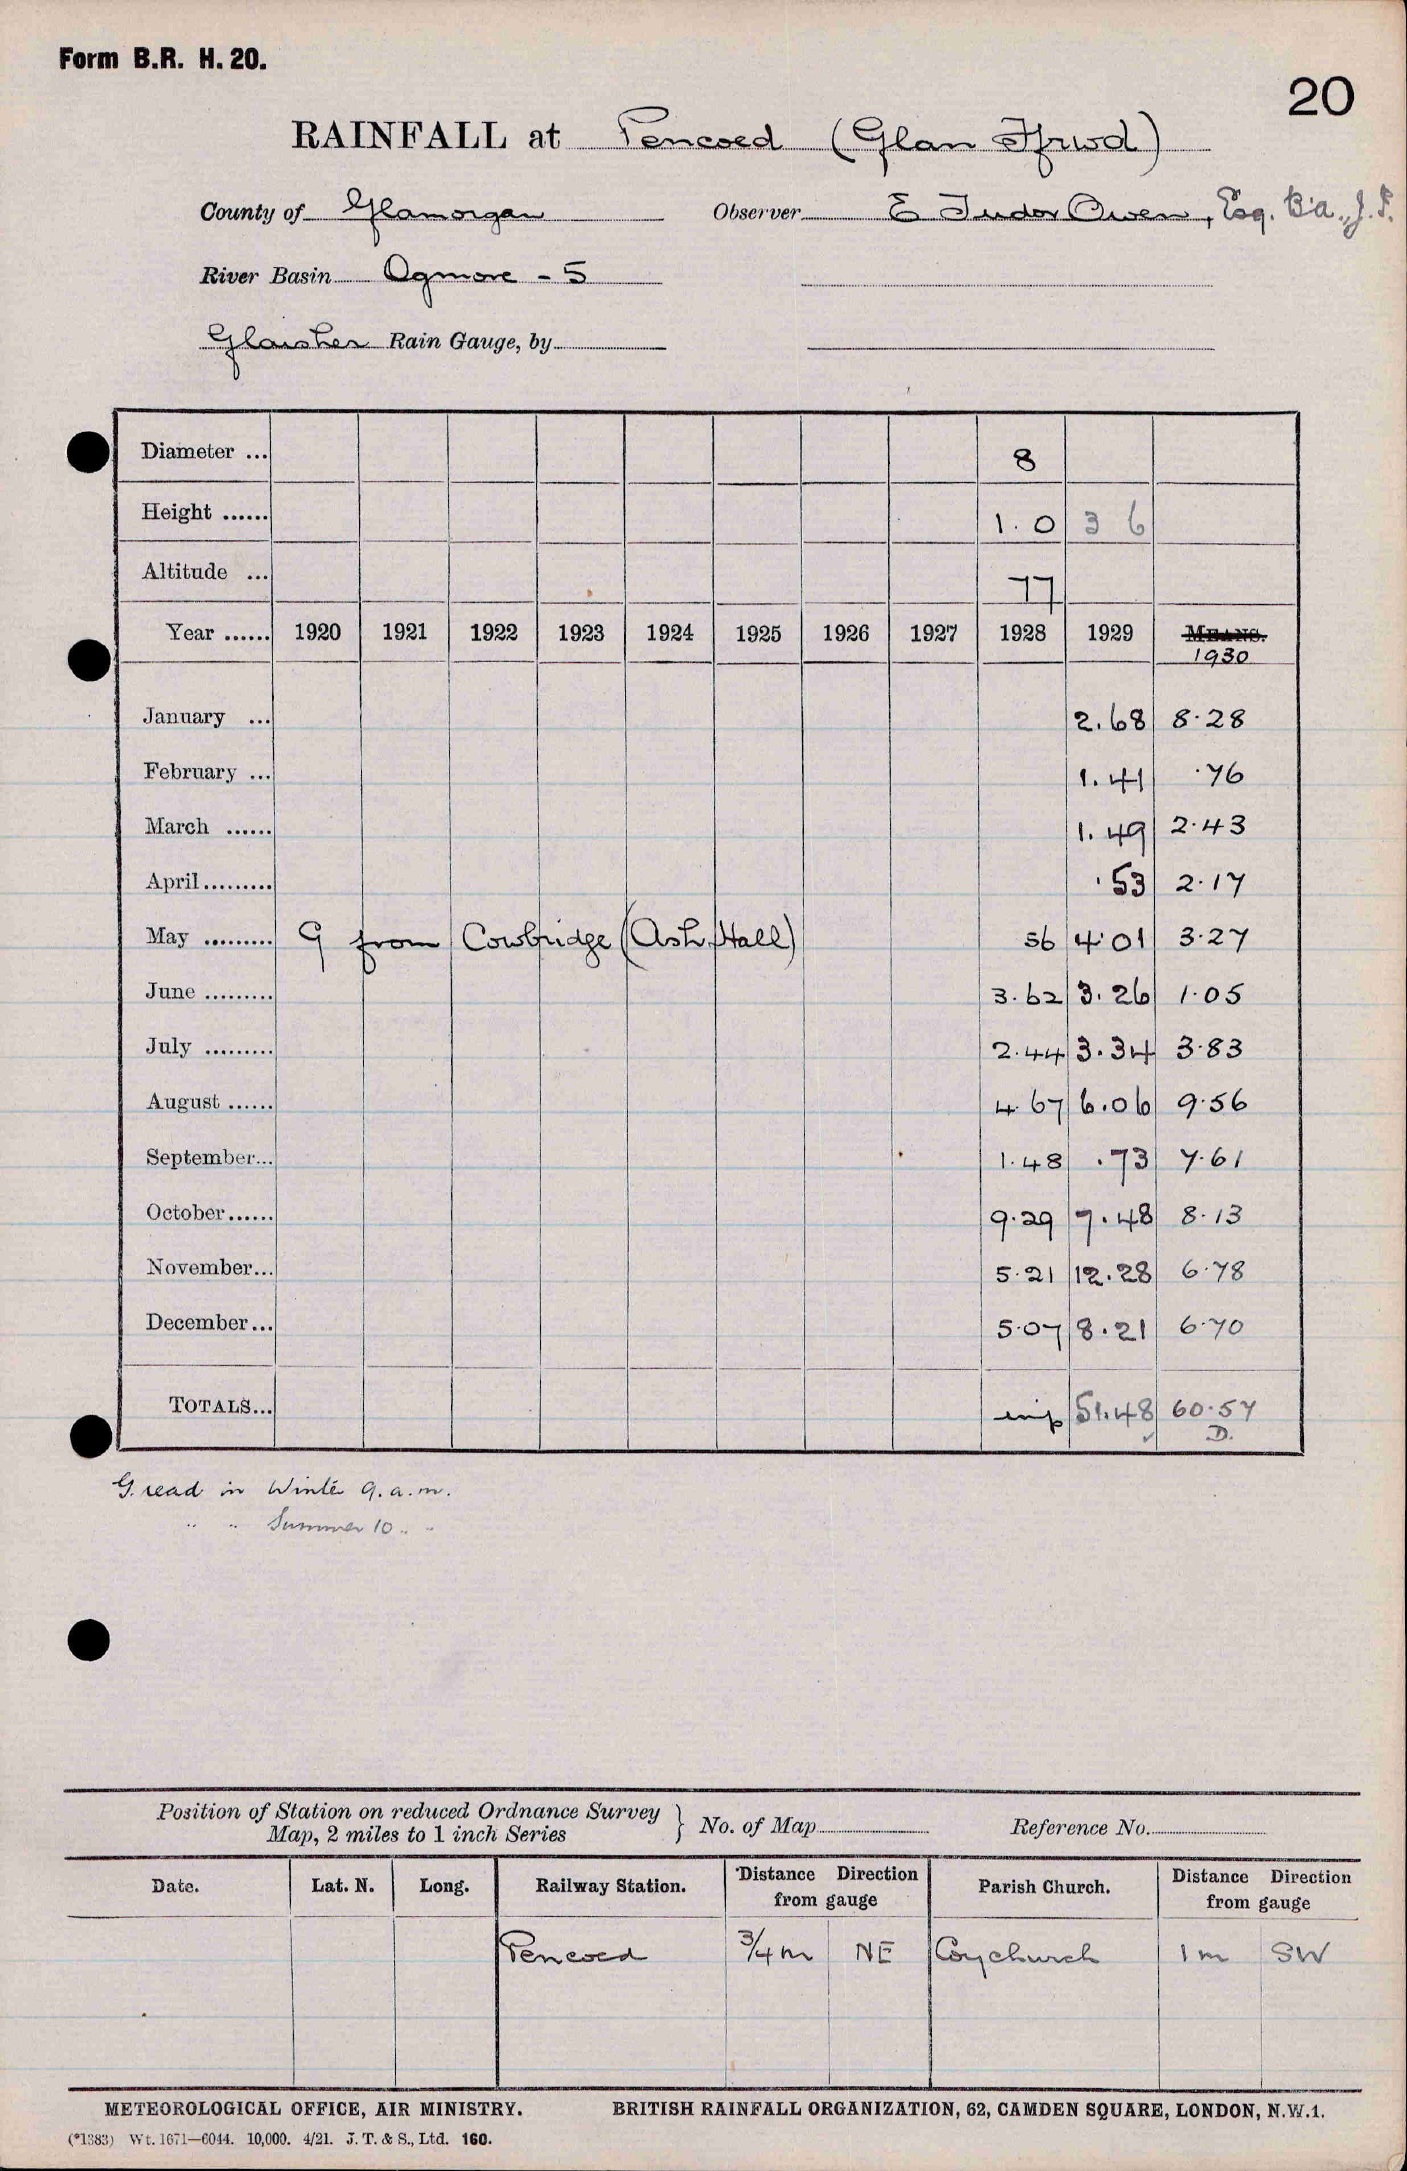 Form B.R. H. 20.
20
RAINFALL at Pencoed (Glan Ffrwd)
County of Glamorgan Observer E Tudor Owen, Esq. B.A., J.P.
River Basin Ogmore - 5
Glaisher Rain Gauge, by
Diameter ... 8
Height ...... 1.0 3 6
Altitude ... 77
Year ...... 1920 1921 1922 1923 1924 1925 1926 1927 1928 1929 MEANS.
1930
January ... 2.68 8.28
February ... 1.41 .76
March ...... 1.49 2.43
April ......... .53 2.17
May ......... G from Cowbridge (Ash Hall) 56 4.01 3.27
June ......... 3.62 3.26 1.05
July ......... 2.44 3.34 3.83
August ...... 4.67 6.06 9.56
September... 1.48 .73 7.61
October ...... 9.29 7.48 8.13
November... 5.21 12.28 6.78
December... 5.07 8.21 6.70
TOTALS... imp 51.48 60.57
✓ D.
G. read in Winter 9.a.m.
" " Summer 10 " "
Position of Station on reduced Ordnance Survey
Map, 2 miles to 1 inch Series } No. of Map Reference No.
Date. Lat. N. Long. Railway Station. Distance Direction from gauge Parish Church. Distance Direction from gauge
Pencoed 3/4 m NE Coychurch 1 m SW
METEOROLOGICAL OFFICE, AIR MINISTRY. BRITISH RAINFALL ORGANIZATION, 62, CAMDEN SQUARE, LONDON, N.W.1.
(*1383) Wt. 1671—6044. 10,000. 4/21. J. T. & S., Ltd. 160.